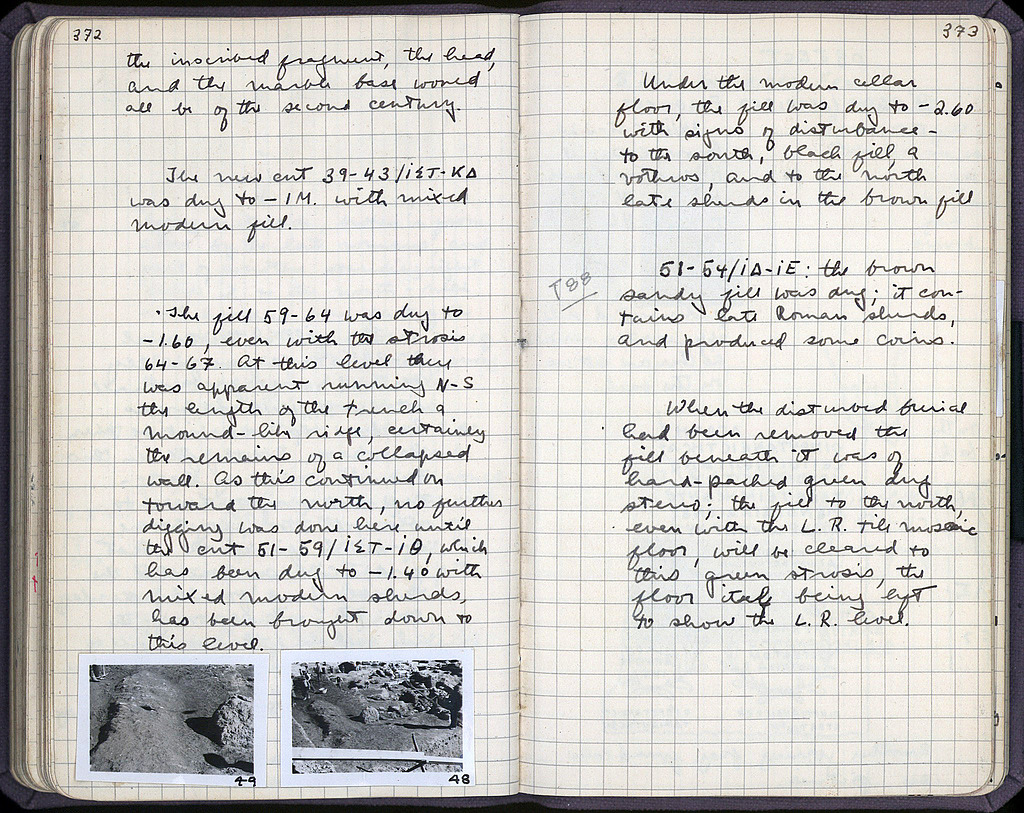 372
the inscribed fragment, the head,
and the marble base would
all be of the second century.
The new cut 39-43/IΣT-KΔ
was dug to -1M. with mixed
modern fill.
The fill 59-64 was dug to
-1.60, even with the strosis
64-67. At this level there
was apparent running N-S
the length of the trench a
mound-like ridge, certainly
the remains of a collapsed
wall. As this continued on
toward the north, no further
digging was done here until
the cut 51-59/IΣT-IΘ, which
has been dug to -1.40 with
mixed modern sherds,
has been brought down to
this level.
49
48
373
Under the modern cellar
floor, the fill was dug to -2.60
with signs of disturbance -
to the south, black fill, a
bothros, and to the north
late sherds in the brown fill
T88
51-54/IΔ-IE: the brown
sandy fill was dug; it con-
tains late Roman sherds,
and produced some coins.
When the disturbed burial
had been removed the
fill beneath it was of
hard-packed green dug
stereo; the fill to the north,
even with the L.R. tile mosaic
floor, will be cleared to
this green strosis, the
floor itself being left
to show the L.R. level.